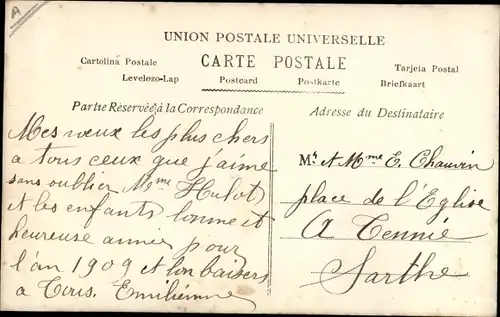 A
UNION POSTALE UNIVERSELLE
CARTE POSTALE
Cartolina Postale
Tarjeta Postal
Levelezo-Lap
Postcard
Postkarte
Briefkaart
Partie Réservée à la Correspondance
Adresse du Destinataire
Mes vœux les plus chers
a tous ceux que j'aime
sans oublier Mme Hulot
et les enfants bonne et
heureuse année pour
l'an 1909 et bon baisers
a Tous. Emilienne
Mr et Mme E. Chauvin
place de l'Eglise
A Tennie
Sarthe